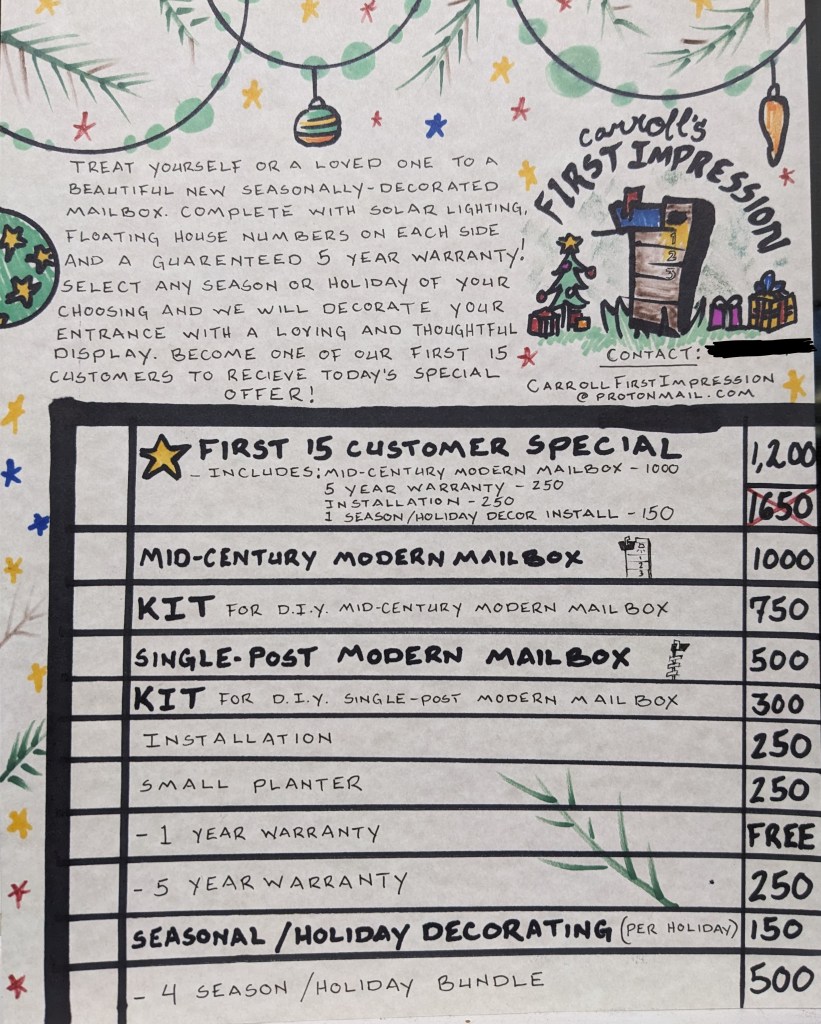 Carroll's
FIRST IMPRESSION
TREAT YOURSELF OR A LOVED ONE TO A
BEAUTIFUL NEW SEASONALLY-DECORATED
MAILBOX. COMPLETE WITH SOLAR LIGHTING,
FLOATING HOUSE NUMBERS ON EACH SIDE
AND A GUARENTEED 5 YEAR WARRANTY!
SELECT ANY SEASON OR HOLIDAY OF YOUR
CHOOSING AND WE WILL DECORATE YOUR
ENTRANCE WITH A LOVING AND THOUGHTFUL
DISPLAY. BECOME ONE OF OUR FIRST 15
CUSTOMERS TO RECIEVE TODAY'S SPECIAL
OFFER!
1
2
3
CONTACT:
CARROLLFIRSTIMPRESSION
@PROTONMAIL.COM
FIRST 15 CUSTOMER SPECIAL 1,200
- INCLUDES: MID-CENTURY MODERN MAILBOX - 1000
5 YEAR WARRANTY - 250
INSTALLATION - 250
1 SEASON/HOLIDAY DECOR INSTALL - 150
1650
MID-CENTURY MODERN MAILBOX 1000
KIT FOR D.I.Y. MID-CENTURY MODERN MAILBOX 750
SINGLE-POST MODERN MAILBOX 500
KIT FOR D.I.Y. SINGLE-POST MODERN MAILBOX 300
INSTALLATION 250
SMALL PLANTER 250
- 1 YEAR WARRANTY FREE
- 5 YEAR WARRANTY 250
SEASONAL/HOLIDAY DECORATING (PER HOLIDAY) 150
- 4 SEASON/HOLIDAY BUNDLE 500